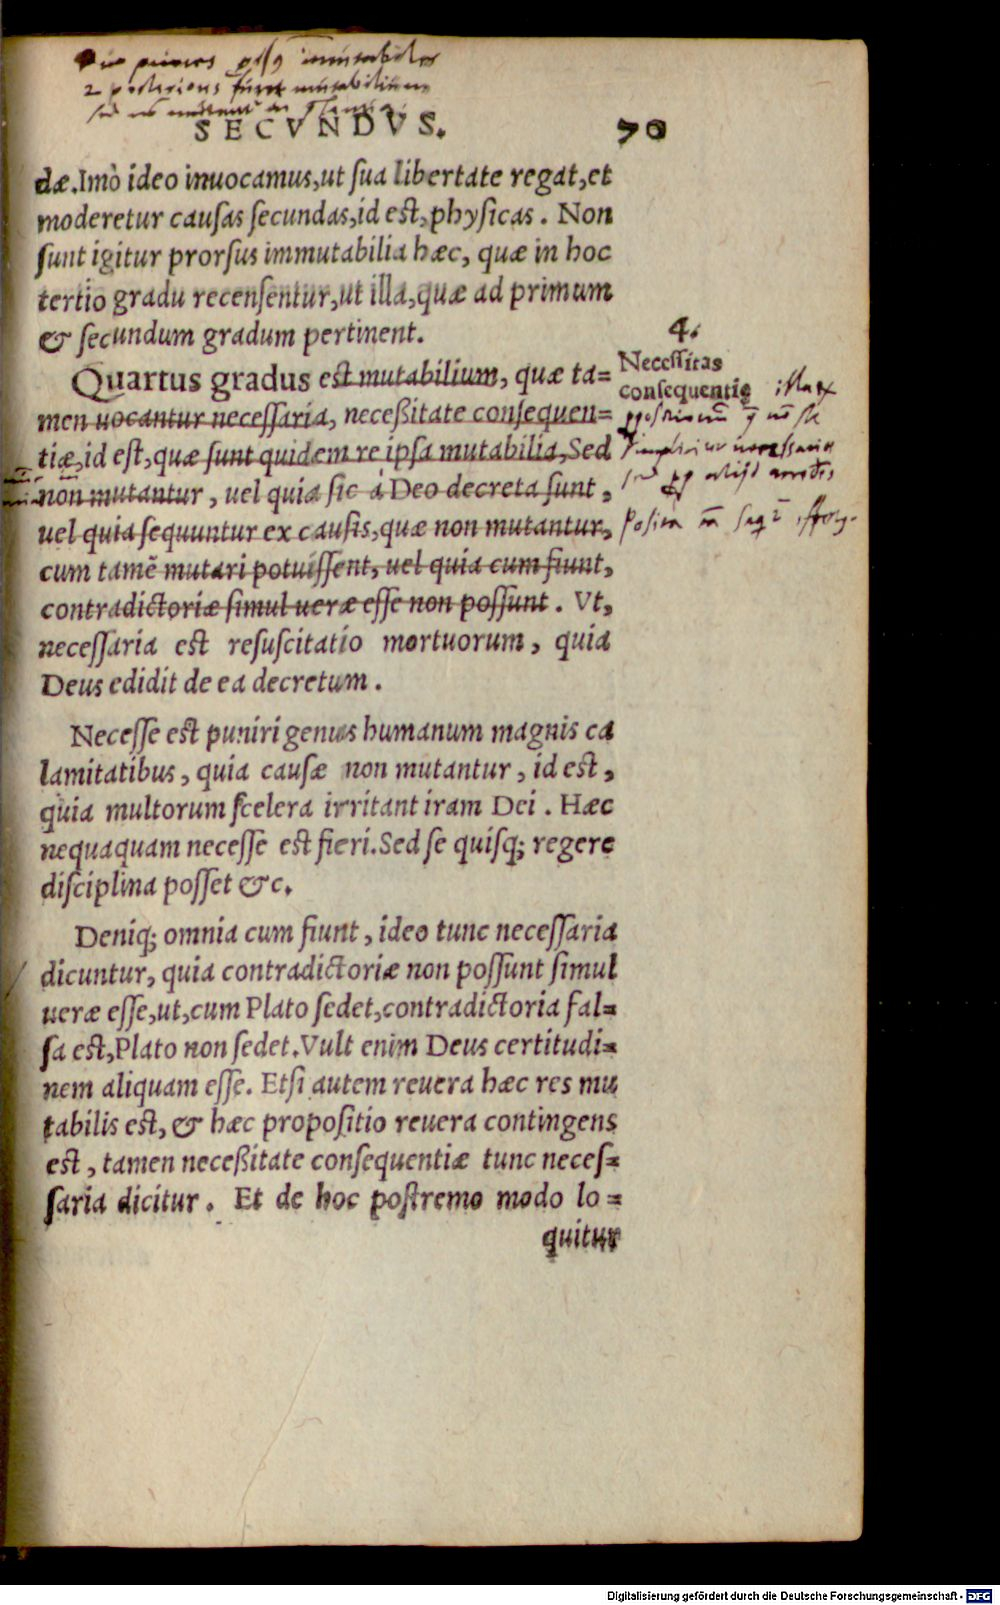 2 posteriores sunt mutabilium
SECVNDVS.
70
dæ. Imò ideo inuocamus, ut sua libertate regat, et
moderetur causas secundas, id est, physicas. Non
sunt igitur prorsus immutabilia hæc, quæ in hoc
tertio gradu recensentur, ut illa, quæ ad primum
& secundum gradum pertinent.
4.
Necessitas
consequentie
Quartus gradus est mutabilium, quæ ta=
men uocantur necessaria, neceßitate consequen=
tiæ, id est, quæ sunt quidem re ipsa mutabilia, Sed
non mutantur, uel quia sic à Deo decreta sunt,
uel quia sequuntur ex causis, quæ non mutantur,
cum tamē mutari potuissent, uel quia cum fiunt,
contradictoriæ simul ueræ esse non possunt. Vt,
necessaria est resuscitatio mortuorum, quia
Deus edidit de ea decretum.
Necesse est puniri genus humanum magnis ca
lamitatibus, quia causæ non mutantur, id est,
quia multorum scelera irritant iram Dei. Hæc
nequaquam necesse est fieri. Sed se quisq; regere
disciplina posset &c.
Deniq; omnia cum fiunt, ideo tunc necessaria
dicuntur, quia contradictoriæ non possunt simul
ueræ esse, ut, cum Plato sedet, contradictoria fal=
sa est, Plato non sedet. Vult enim Deus certitudi=
nem aliquam esse. Etsi autem reuera hæc res mu
tabilis est, & hæc propositio reuera contingens
est, tamen neceßitate consequentiæ tunc neces=
saria dicitur. Et de hoc postremo modo lo=
quitur
Digitalisierung gefördert durch die Deutsche Forschungsgemeinschaft - DFG